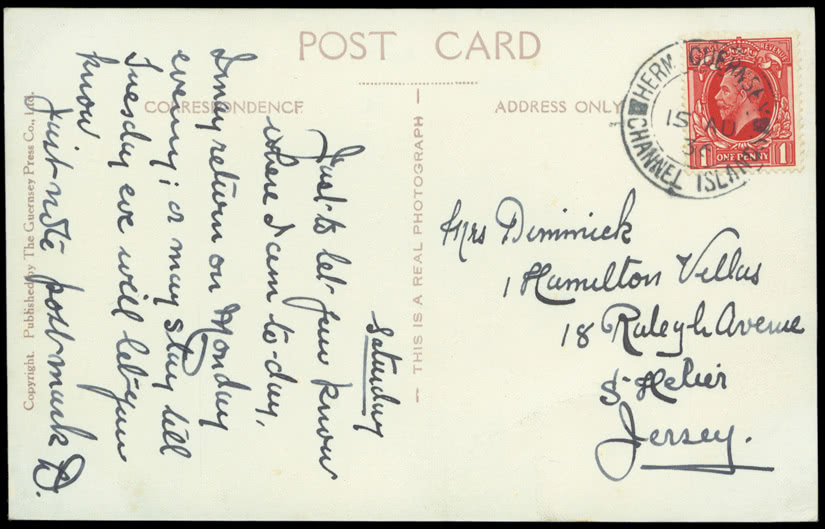 POST CARD
CORRESPONDENCE
ADDRESS ONLY
Saturday
Just to let you know
where I am to-day,
I may return on Monday
evening; or may stay till
Tuesday eve will let you
know
Just note post-mark D.
Copyright. Published by The Guernsey Press Co., Ltd.
THIS IS A REAL PHOTOGRAPH
HERM GUERNSEY
15 AU
36
CHANNEL ISLANDS
REVENUE
1 ONE PENNY 1
Mrs Dimmick
1 Hamilton Villas
18 Raleygh Avenue
St Helier
Jersey.